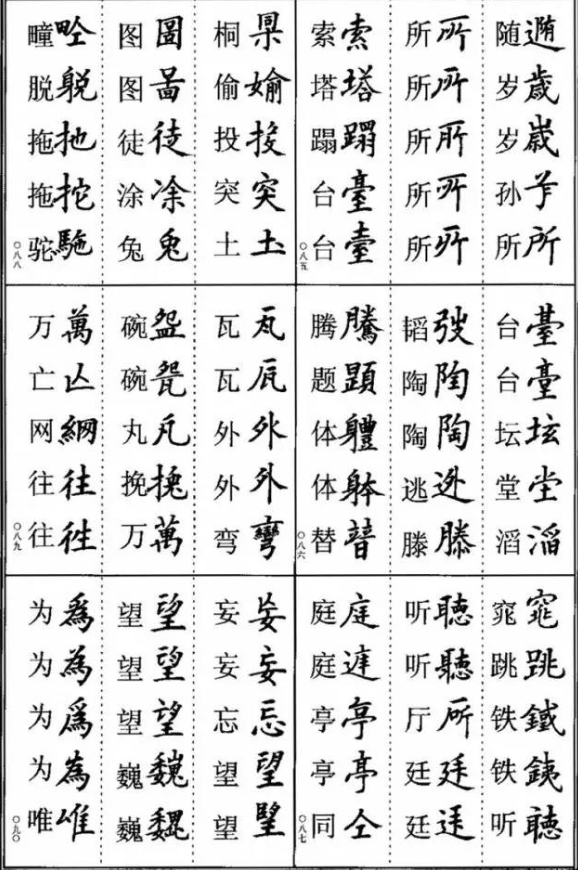 随遀岁歳岁嵗孙所所
所所所所所所所所所所
索索塔塔蹋蹋台臺台臺
〇八五
台臺台臺坛坛堂坣滔滔
韬弢陶陶陶陶逃迯滕滕
腾騰题題体軆体躰替
〇八六
窕窕跳跳铁鐵铁銕听聽
听聽听聽厅所廷廷廷
庭庭庭亭亭亭亭同仝
〇八七
桐偷媮投投突突土圡
图圖图啚徒徒涂凃兔兎
疃脱拖扡拖拕驼駞
〇八八
瓦瓦瓦外外外外弯彎
碗盌碗丸挽万萬
万萬亡亾网網往往往徃
〇八九
妄妄妄妄忘忘望望望朢
望望望望望望巍巍巍
为為为為为爲为為唯
〇九〇